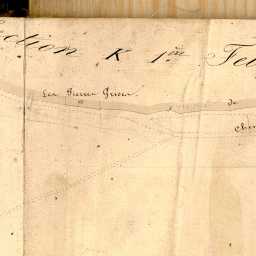 ection K 1re Feu
Les Pierres Grises
de
Che